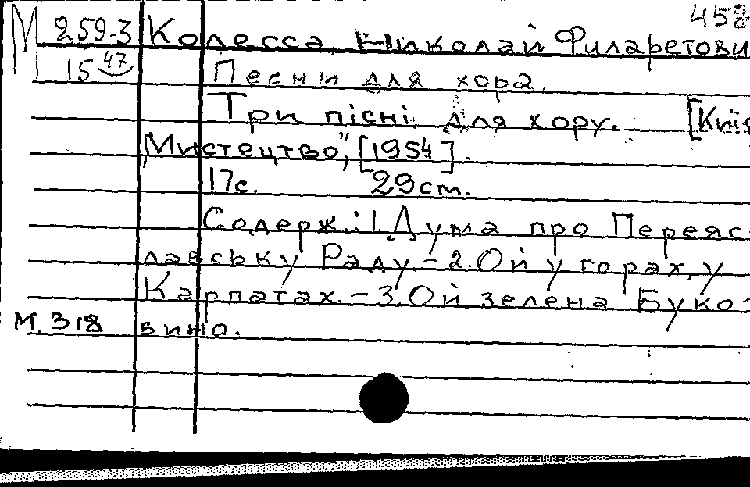 458
М 259-3 Колесса, Николай Филаретови
15 47 Песни для хора.
Три пісні для хору. [Київ
„Мистецтво", [1954].
17с. 29cm.
Содерж.: 1. Дума про Переяс-
лавську Раду.-2. Ой у горах, у
Карпатах.-3. Ой зелена Буко-
М. 318 вино.